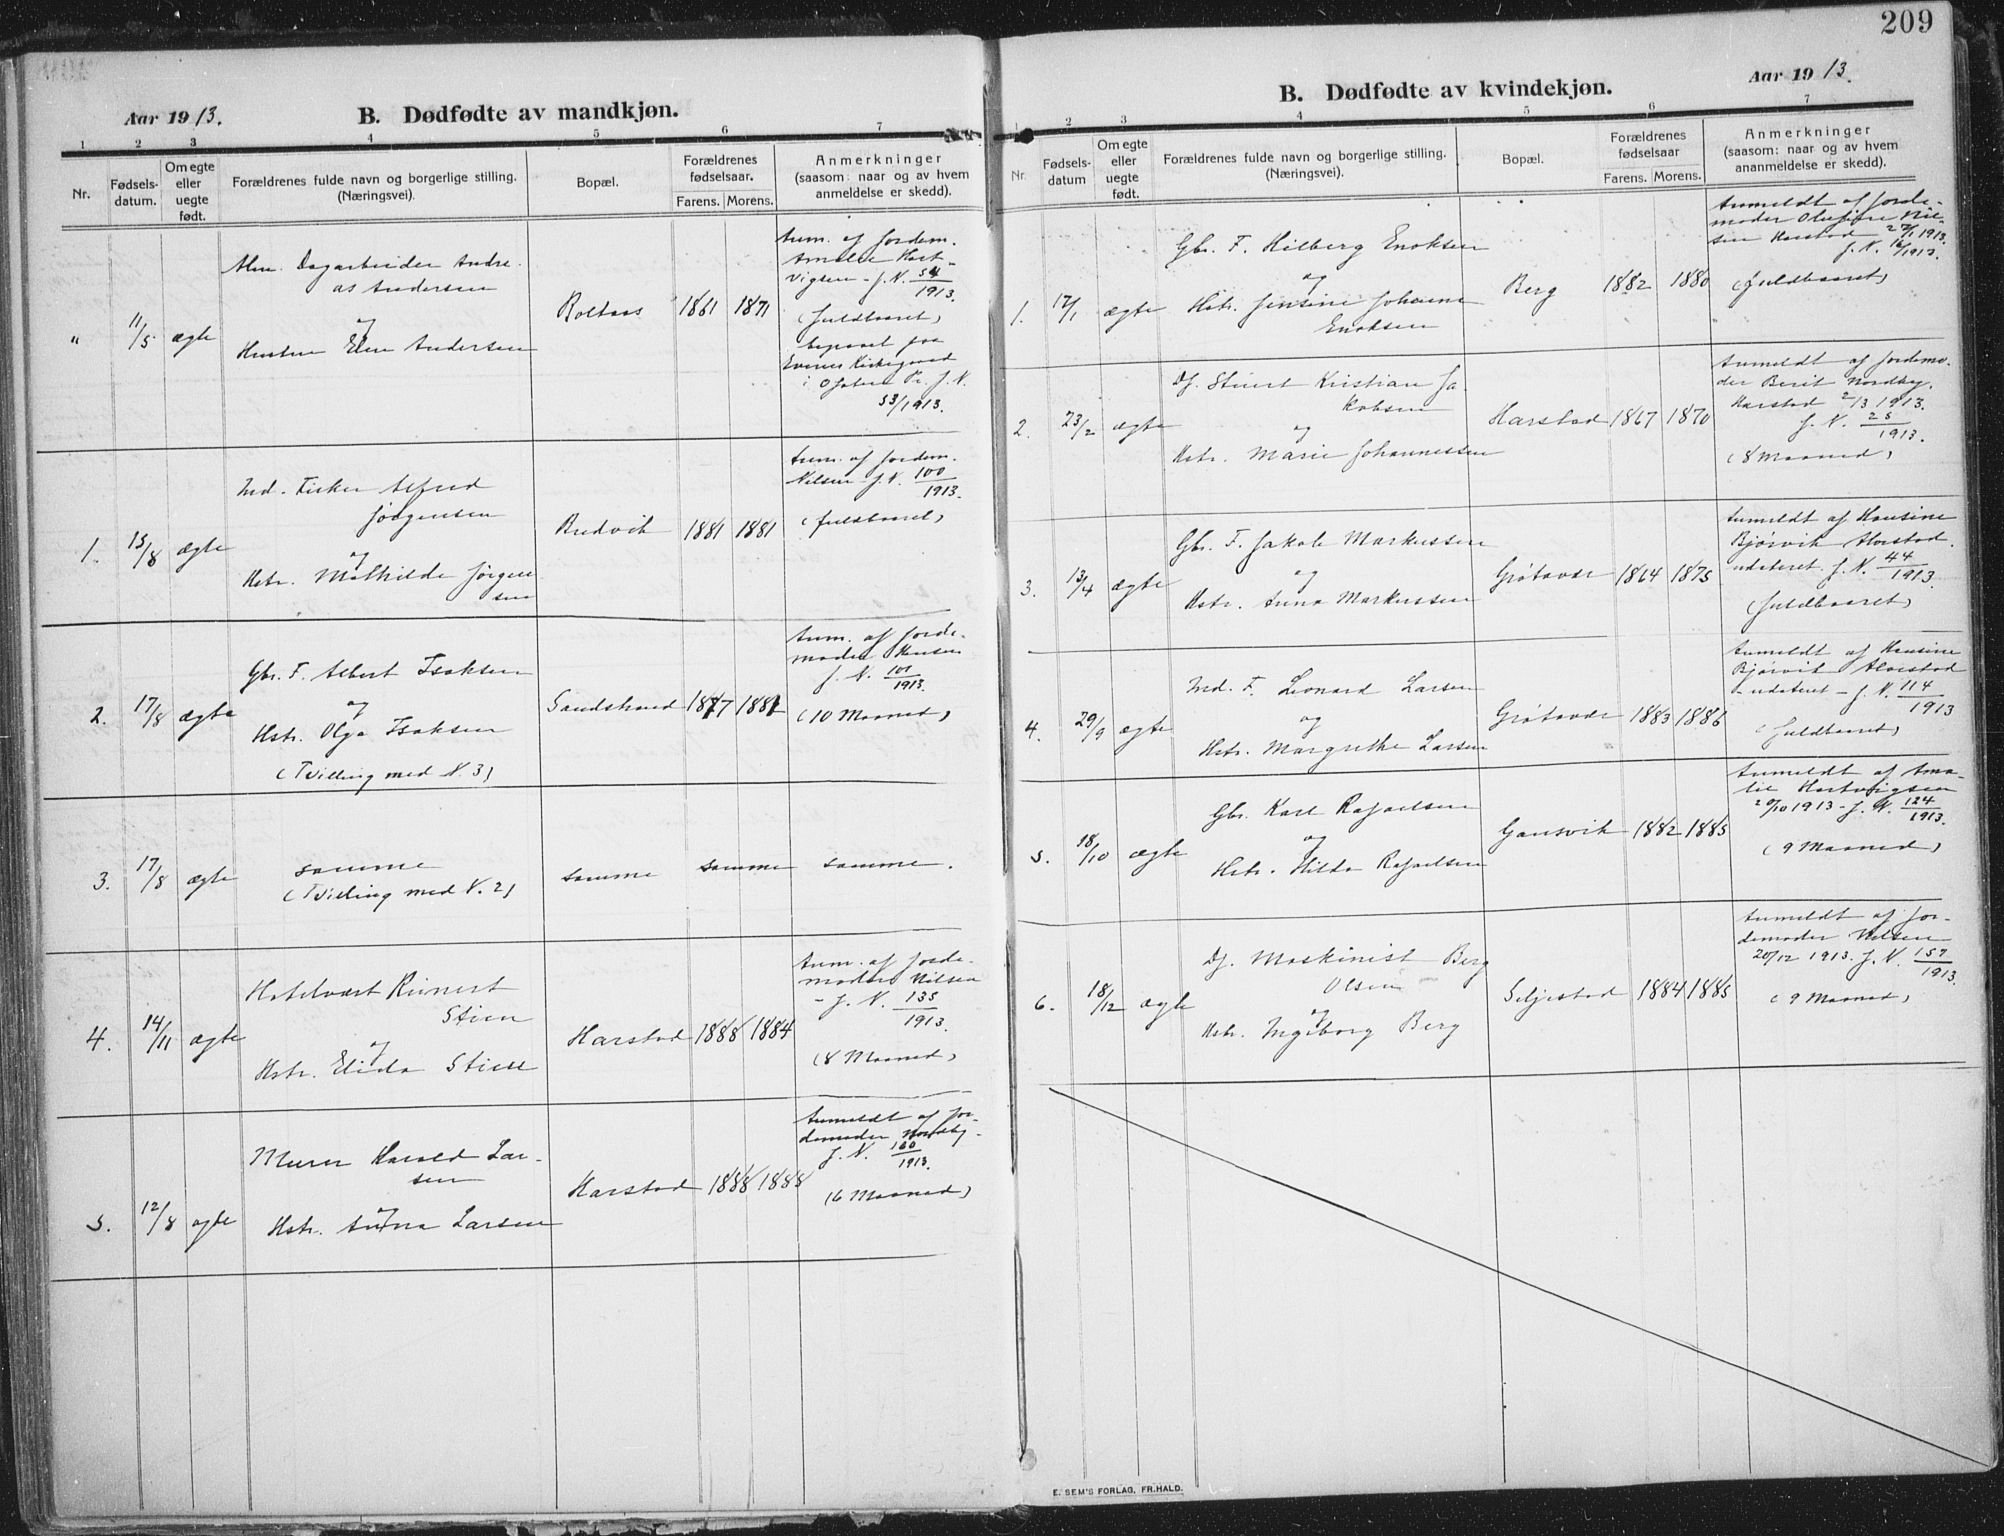 209
Aar 1913.
B. Dødfødte av mandkjøn.
1 2 3 4 5 6 7
Nr.
Fødsels-
datum.
Om egte
eller
uegte
født.
Forældrenes fulde navn og borgerlige stilling.
(Næringsvei).
Bopæl.
Forældrenes
fødselsaar.
Farens. Morens.
Anmerkninger
(saasom: naar og av hvem
anmeldelse er skedd).
"
11/5
ægte
Dagarbeider Andre-
as Andersen
og
Hustru Elen Andersen
1861 1871
Anm. af Jordem.
Amalie Hart-
vigsen - J. N. 54/1913.
(fuldbaaret)
begravet paa
Evenes Kirkegaard
i Ofoten Pr. J. N.
53/1913.
1.
13/8
ægte
Ind. Fisker Alfred
Jörgensen
og
Hstr. Mathilde Jörgen
sen
Bredvik
1881 1881
Anm. af Jordem.
Nilsen J. N. 100/1913.
(fuldbaaret)
2.
17/8
ægte
Gbr. F. Albert Isaksen
og
Hstr. Olga Isaksen
(Tvilling med N. 3)
Sandstrand
1877 1881
Anm. af Jorde-
moder Hansen
J. N. 101/1913.
(10 Maaned)
3.
17/8
ægte
samme
(Tvilling med N. 2)
samme
samme
samme.
4.
14/11
ægte
Hotelvært Reinert
Stien
og
Hstr. Elida Stien
Harstad
1888 1884
Anm. af Jorde-
moder Nilsen
- J. N. 135/1913.
(8 Maaned)
5.
12/8
ægte
Murer Harald Lar-
sen
og
Hstr. Anna Larsen
Harstad
1888 1888
Anmeldt af Jor-
demoder Nordby-
J. N. 160/1913.
(6 Maaned)
Aar 1913.
B. Dødfødte av kvindekjøn.
1 2 3 4 5 6 7
Nr.
Fødsels-
datum
Om egte
eller
uegte
født.
Forældrenes fulde navn og borgerlige stilling.
(Næringsvei).
Bopæl.
Forældrenes
fødselsaar
Farens. Morens.
Anmerkninger
(saasom: naar og av hvem
ananmeldelse er skedd).
1.
17/1
ægte
Gbr. F. Hilberg Enoksen
og
Hstr. Jensine Johanne
Enoksen
Berg
1882 1880
Anmeldt af Jorde-
moder Olufine Niel-
sen Harstad 27/1 1913.
J. N. 16/1913.
(fuldbaaret)
2.
23/2
ægte
Df. Stuert Kristian Ja-
kobsen
og
Hstr. Marie Johannessen
Harstad
1867 1870
Anmeldt af Jordemo-
der Berit Nordby,
Harstad 2/3 1913.
J. N. 25/1913.
(8 Maaned)
3.
13/4
ægte
Gbr. F. Jakob Markussen
og
Hstr. Anna Markussen
Grötavær
1864 1875
Anmeldt af Hansine
Bjørvik Alvestad.
udateret. J. N. 44/1913.
(fuldbaaret)
4.
29/9
ægte
Ind. F. Leonard Larsen
og
Hstr. Margrethe Larsen
Grötavær
1883 1886
Anmeldt af Hansine
Bjørvik Alvestad
- udateret - J. N. 114/1913
(fuldbaaret)
5.
18/10
ægte
Gbr. Karl Rafaelsen
og
Hstr. Hilda Rafaelsen
Gausvik
1882 1885
Anmeldt af Ama-
lie Hartvigsen
20/10 1913 - J. N. 124/1913.
(9 Maaned)
6.
18/12
ægte
Df. Maskinist Berg
Olsen
og
Hstr. Ingeborg Berg
Seljestad
1884 1885
Anmeldt af Jor-
demoder Nilsen
20/12 1913. J. N. 157/1913.
(9 Maaned)
E. SEM'S FORLAG, FR.HALD.